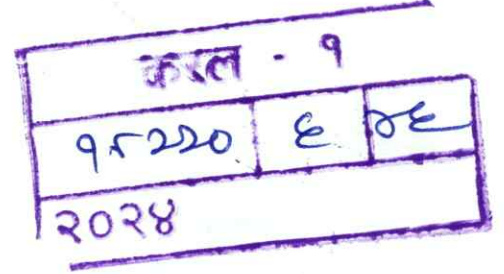 करल - १
१५२२० ६ ४६
२०२४